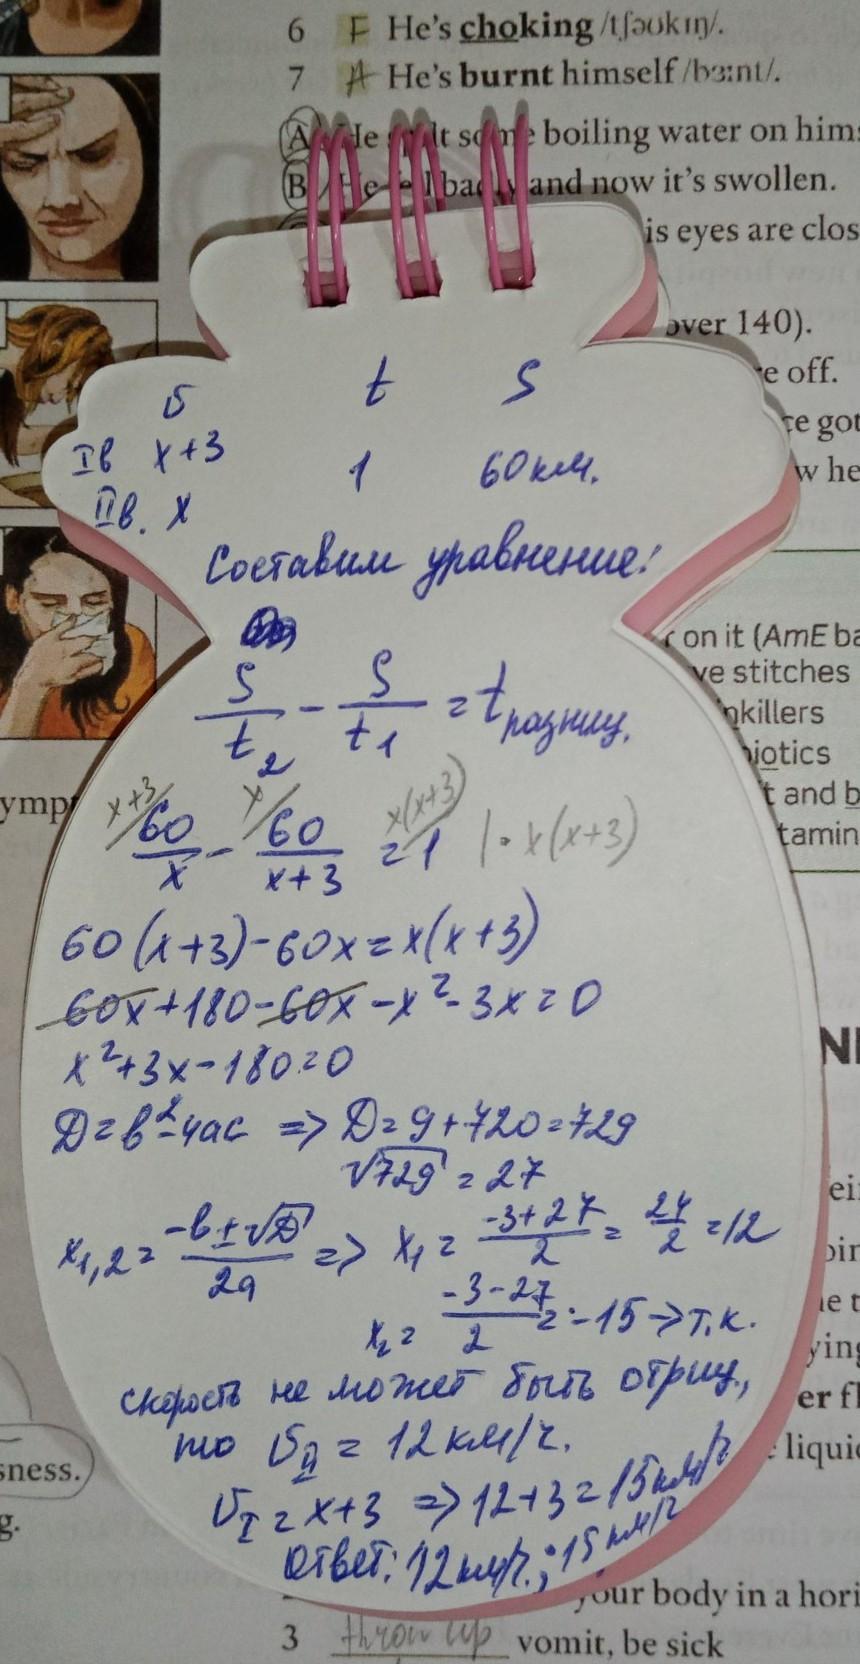 6 F He's choking /tʃəʊkɪŋ/.
7 A He's burnt himself /bɜːnt/.
A He spilt some boiling water on hims
B He fell badly and now it's swollen.
is eyes are clos
over 140).
e off.
ce got
w he
υ t S
Iв x+3 1 60км.
IIв. x
Составим уравнение:
S/t₂ - S/t₁ = t разниц.
x+3/ 60/x - x/ 60/x+3 = 1 x(x+3)/ | · x(x+3)
60(x+3)-60x=x(x+3)
60x+180-60x-x²-3x=0
x²+3x-180=0
D=b²-4ac => D=9+720=729
√729=27
x₁,₂= -b±√D/2a => x₁= -3+27/2 = 24/2 =12
x₂= -3-27/2 =-15 -> т.к.
скорость не может быть отриц.,
то υII = 12км/ч.
υI = x+3 => 12+3=15км/ч
Ответ: 12км/ч.; 15км/ч
r on it (AmE ba
ve stitches
nkillers
biotics
t and b
tamin
ymp
NI
sness.
g.
er fl
liquid
your body in a hori
3 throw up vomit, be sick